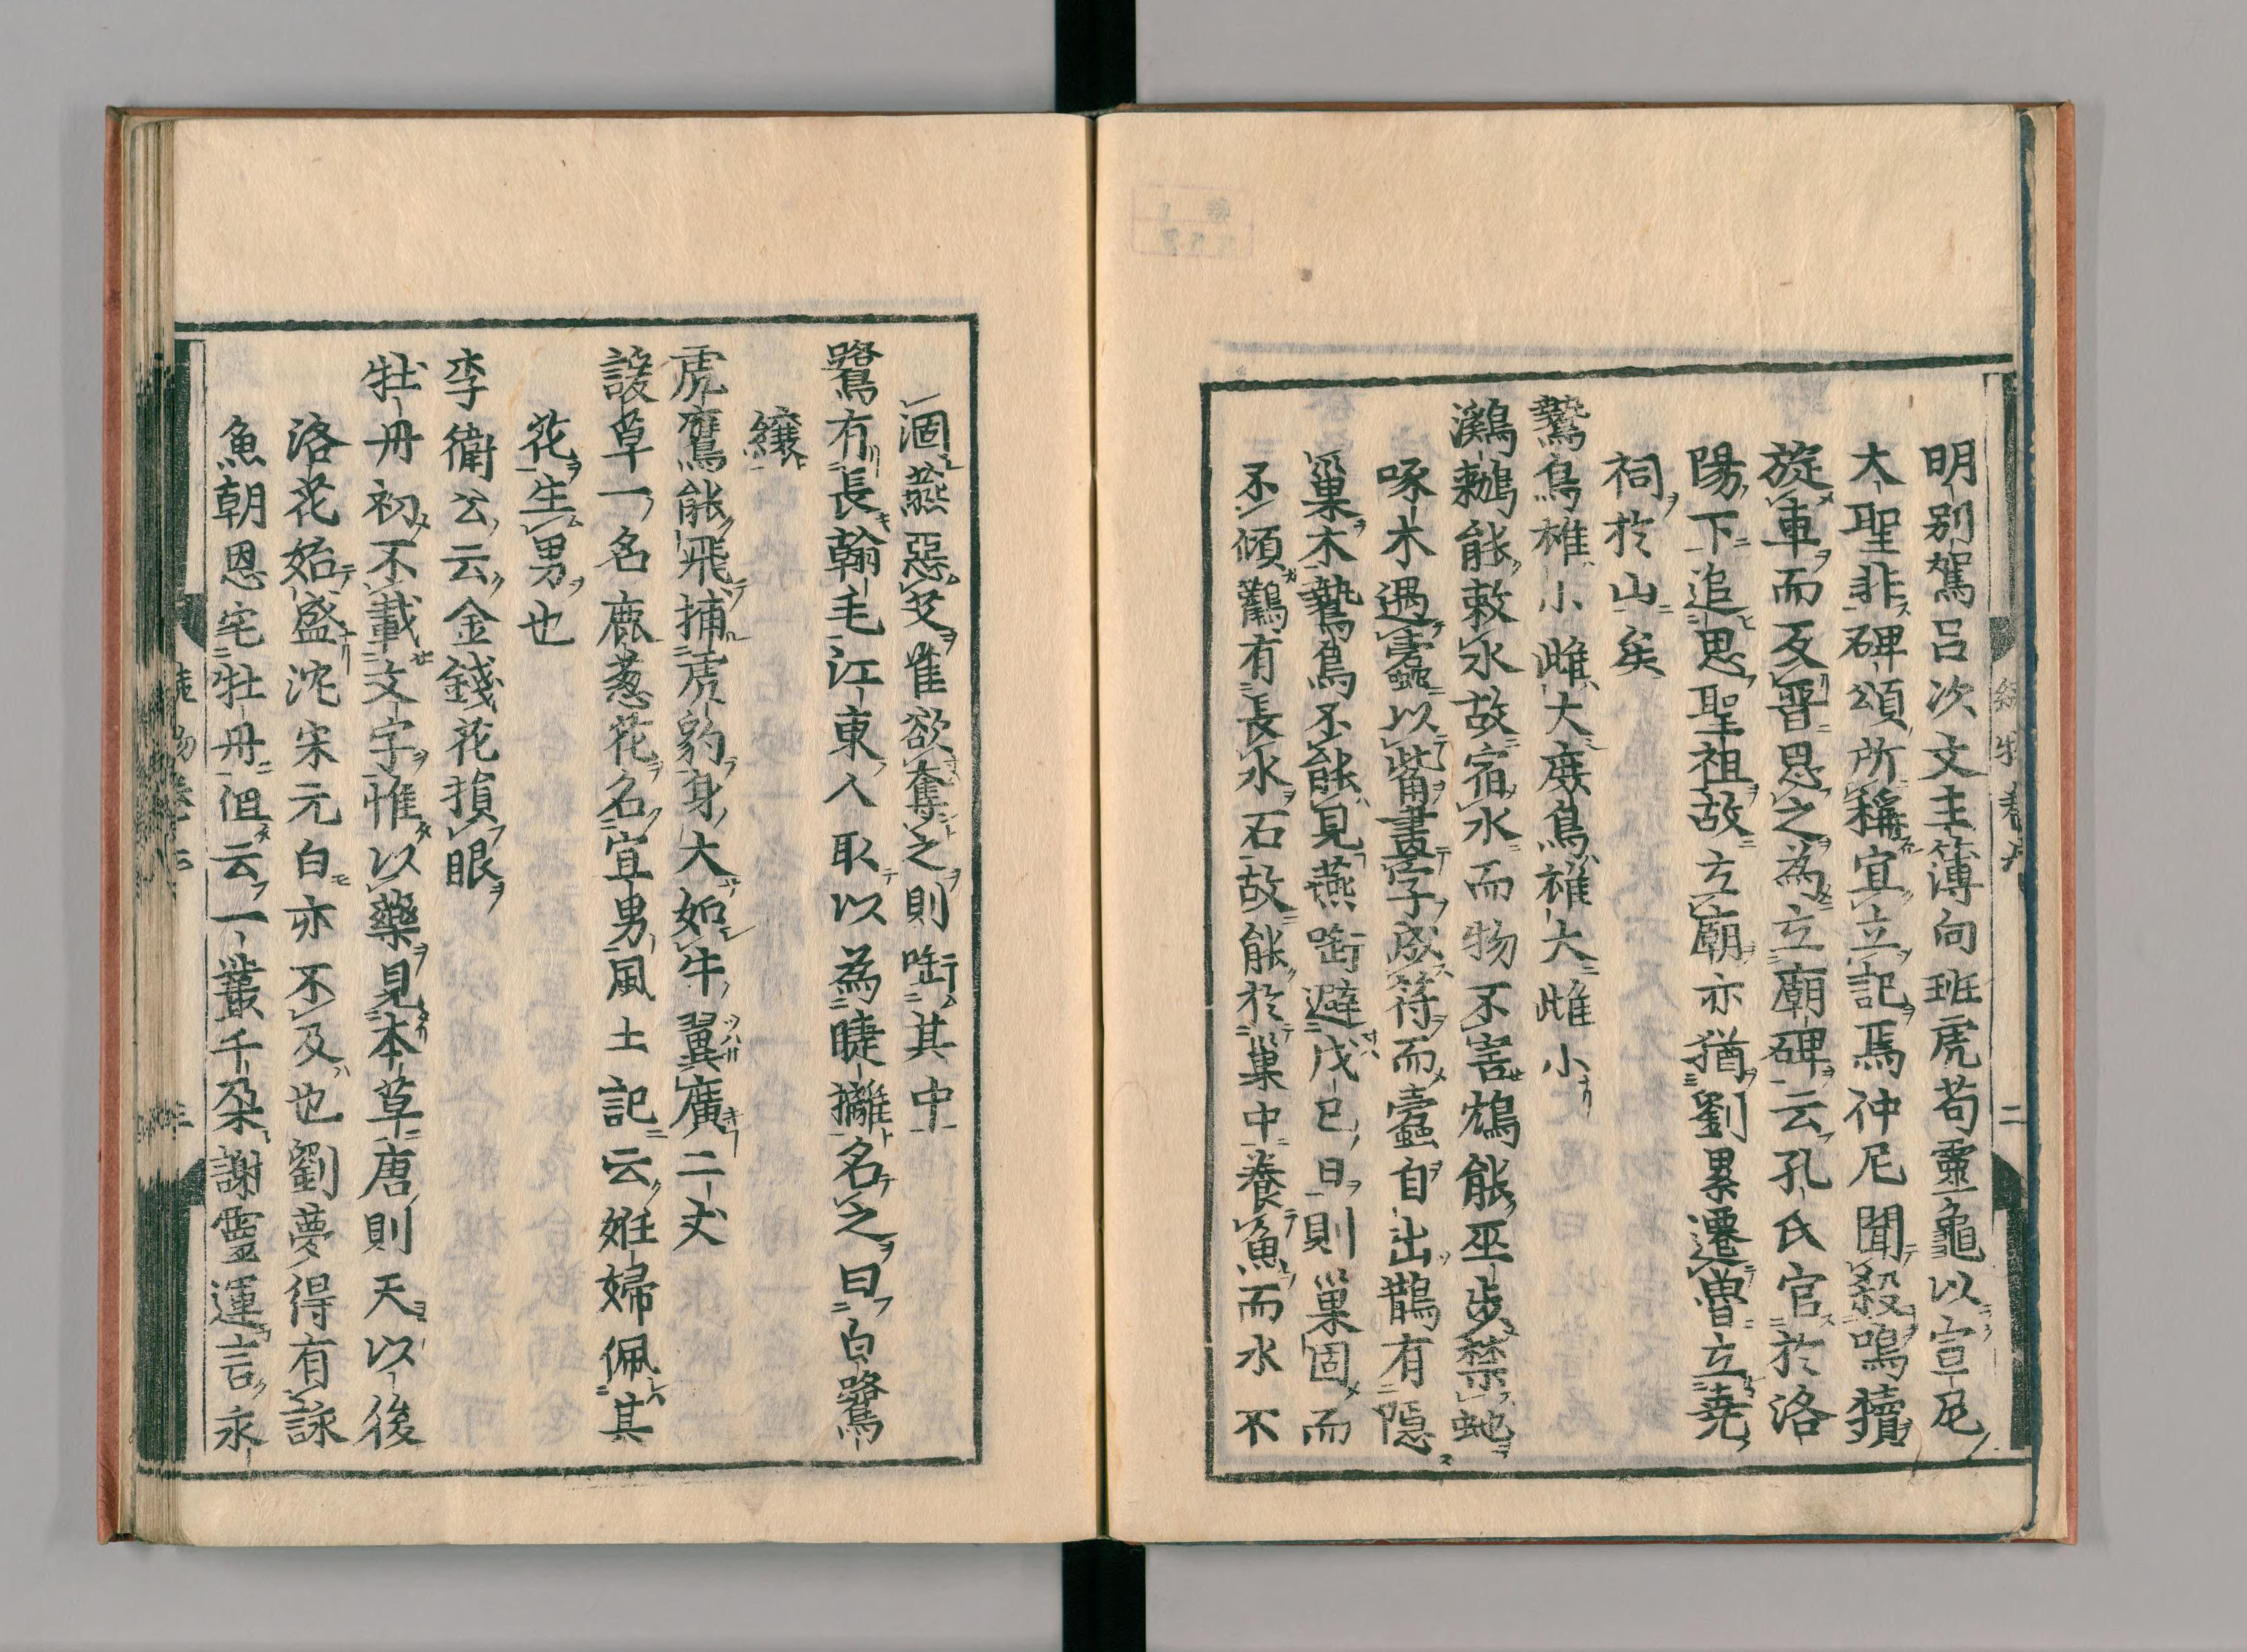 明別駕呂次文主簿向班虎苟靈龜以宣尼
大聖非碑頌所稱宜立記焉仲尼聞殺鳴犢
旋車而反晋思之為立廟碑云孔氏官於洛
陽下追思聖祖故立廟亦猶劉累遷曽立堯
祠於山矣
鷙鳥雄小雌大庻鳥雄大雌小
鸂鶒能敕水故宿水而物不害鴆能巫步禁蛇
啄木遇蠹以觜畫字成符而蠹自出鵲有隱
巢木鷙鳥不能見燕啣避戊巳日則巢固而
不傾鸛有長水石故能於巢中養魚而水不
涸燕惡艾雀欲奪之則啣其中
鷺有長翰毛江東人取以為睫㰚名之曰白鷺
縗
虎鷹能飛捕虎豹身大如牛翼廣二丈
諼草一名鹿葱花名宜男風土記云姙婦佩其
花生男也
李衛公云金錢花損眼
牡丹初不載文字惟以藥見本草唐則天以後
洛花始盛沈宋元白亦不及也劉夢得有詠
魚朝恩宅牡丹但云一叢千朶謝靈運言永